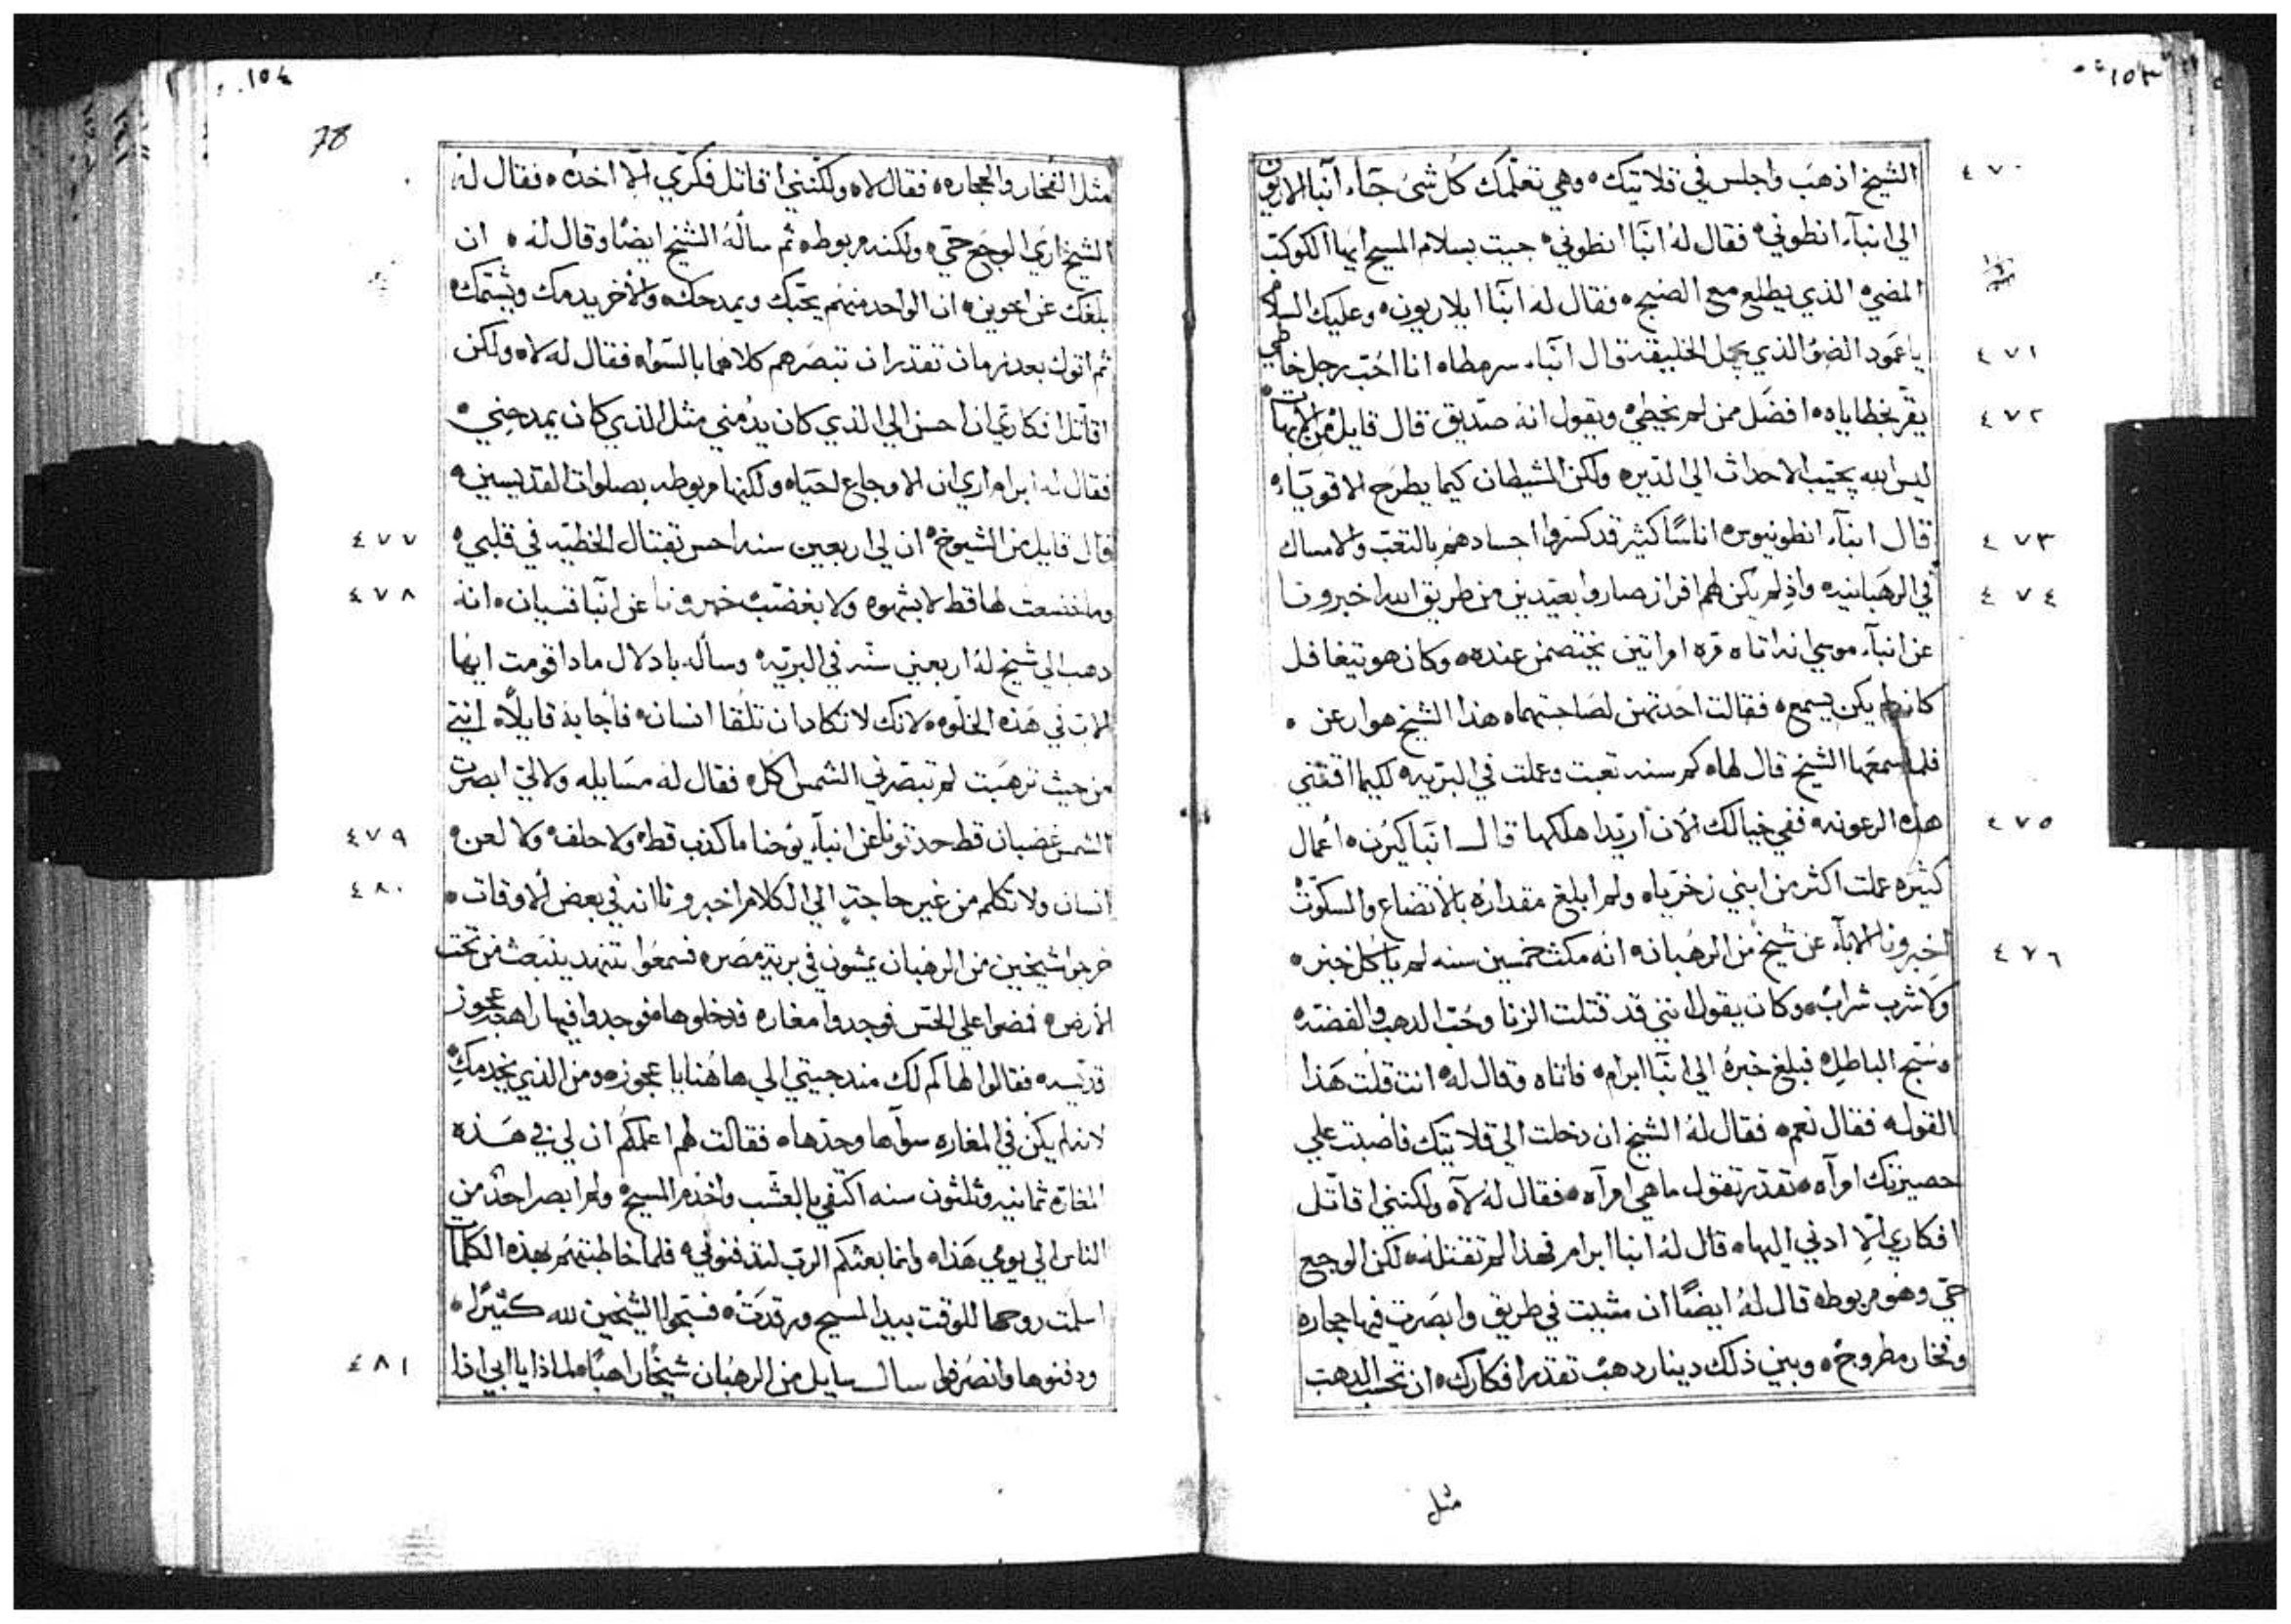 ١٥٣
٤٧٠ الشيخ اذهب واجلس في قلايتك ه وهي تعلمك كل شئ جاء انبا الاريون
الي انبآء انطوني ه فقال له انبا انطوني ه جيت بسلام المسيح ايها الكوكب
المضي ه الذي يطلع مع الصبح ه فقال له انبا ايلاريون ه وعليك السلام
٤٧١ يا عمود الضؤ الذي يحمل الخليقه قال انبآء سرمطاه انا احب رجل خاطي
٤٧٢ يقر بخطاياه ه افضل ممن لم يخطي ه ويقول انه صديق قال قايل من الابهات
ليس الله يجيب الاحداث الي الديره ولكن الشيطان كيما يطرح الاقوياء ه
٤٧٣ قال انبآء انطونيوس ه اناسًا كثير قد كسروا اجسادهم بالتعب والامساك
٤٧٤ في الرهبانيه ه واذ لم يكن لهم افراز صاروا بعيدين من طريق الله اخبرونا
عن انبآء موسي انه اتاه مره امراتين يختصمن عنده ه وكان هو يتغافل
كانه لم يكن يسمع ه فقالت احدتهن لصاحبتها ه هذا الشيخ هو ارعن ه
فلما سمعها الشيخ قال لها ه كم سنه تعبت وعملت في البريه ه لكيما اقتني
٤٧٥ هذه الرعونه ه ففي خيالك الان اريد اهلكها قال انبا كيرن ه اعمال
كثيره عملت اكثر من ابني زخريا ه ولم ابلغ مقداره بالاتضاع والسكوت ه
٤٧٦ اخبرونا الابآء عن شيخ من الرهبان ه انه مكث خمسين سنه لم ياكل خبز ه
ولا شرب شراب ه وكان يقول انني قد قتلت الزنا وحب الدهب والفضه ه
وسبح الباطل ه فبلغ خبره الي انبا ابرام ه فاتاه وقال له ه انت قلت هذا
القول ه فقال نعم ه فقال له الشيخ ان دخلت الي قلايتك فاصبت علي
حصيرتك امرآه ه تقدر تقول ما هي امرآه ه فقال له لآه ولكنني اقاتل
افكاري الا ادني اليها ه قال له انبا ابرام فهذا لم تقتله ه لكن الوجع
حي وهو مربوط ه قال له ايضًا ان مشيت في طريق وابصرت فيها حجاره
وفخار مطروح ه وبين ذلك دينار دهب تقدر افكارك ه ان تحسب الدهب
مثل
١٥٤
78
مثل الفخار والحجاره ه فقال لا ه ولكنني اقاتل فكري الا اخذه ه فقال له
الشيخ اري الوجع حي ه ولكنه مربوط ه ثم ساله الشيخ ايضًا وقال له ه ان
بلغك عن اخوين ه ان الواحد منهم يحبك ويمدحك ه والاخر يدمك ويشتمك ه
ثم اتوك بعد زمان تقدر ان تبصرهم كلاهما بالسوا ه فقال له لا ه ولكن
اقاتل افكاري ان احسن الي الذي كان يدمني مثل الذي كان يمدحني ه
فقال له ابرام اري ان الاوجاع احياه ولكنها مربوطه بصلوات القديسين ه
٤٧٧ قال قايل من الشيوخ ه ان لي اربعين سنه احس بقتال الخطيه في قلبي ه
٤٧٨ وما خضعت لها قط لا بشهوه ولا بغضب ه خبرونا عن انبا قسيان ه انه
دهب الي شيخ له اربعين سنه في البريه ه وساله بادلال مادا قومت ايها
الاب في هذه الخلوه ه لانك لا تكاد ان تلقا انسان ه فأجابه قايلاً ه انني
من حيث ترهبت لم تبصرني الشمس اكل ه فقال له مسايله ولا لي ابصرت
٤٧٩ الشمس غضبان قط حدثونا عن انبآء يوحنا ما كذب قط ه ولا حلف ه ولا لعن ه
٤٨٠ انسان ولا تكلم من غير حاجه الي الكلام اخبرونا انه في بعض الاوقات ه
خرجوا شيخين من الرهبان يمشون في برية مصر ه فسمعوا تنهد ينبعث من تحت
الارض ه فمضوا علي الحس فوجدوا مغاره فدخلوها ه فوجدوا فيها راهبه عجوز
قديسه ه فقالوا لها كم لك مند جيتي الي هاهنا يا عجوزه ومن الذي يخدمك ه
لانه لم يكن في المغاره سواها وحدها ه فقالت لهم اعلمكم ان لي في هذه
المغاره ثمانيه وثلثون سنه اكتفي بالعشب واخدم المسيح ه ولم ابصر احد من
الناس الي يومي هذا ه وانما بعثكم الرب لتدفنوني ه فلما خاطبتهم بهذه الكلمات
اسلمت روحها للوقت بيد المسيح ورقدت ه فسبحوا الشيخين لله كثيرًا ه
٤٨١ ودفنوها وانصرفوا سال سايل من الرهبان شيخًا راهبًا ه لماذا يا ابي اذا